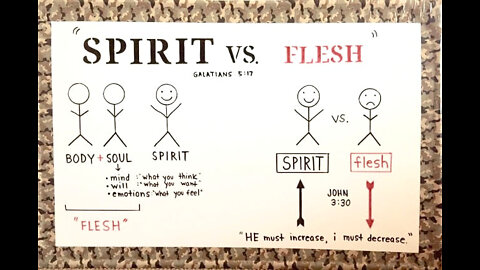 "SPIRIT VS. FLESH"
GALATIANS 5:17
BODY + SOUL SPIRIT
• mind : "what you think"
• will : "what you want"
• emotions "what you feel"
"FLESH"
VS.
SPIRIT flesh
JOHN
3:30
"HE must increase, i must decrease."